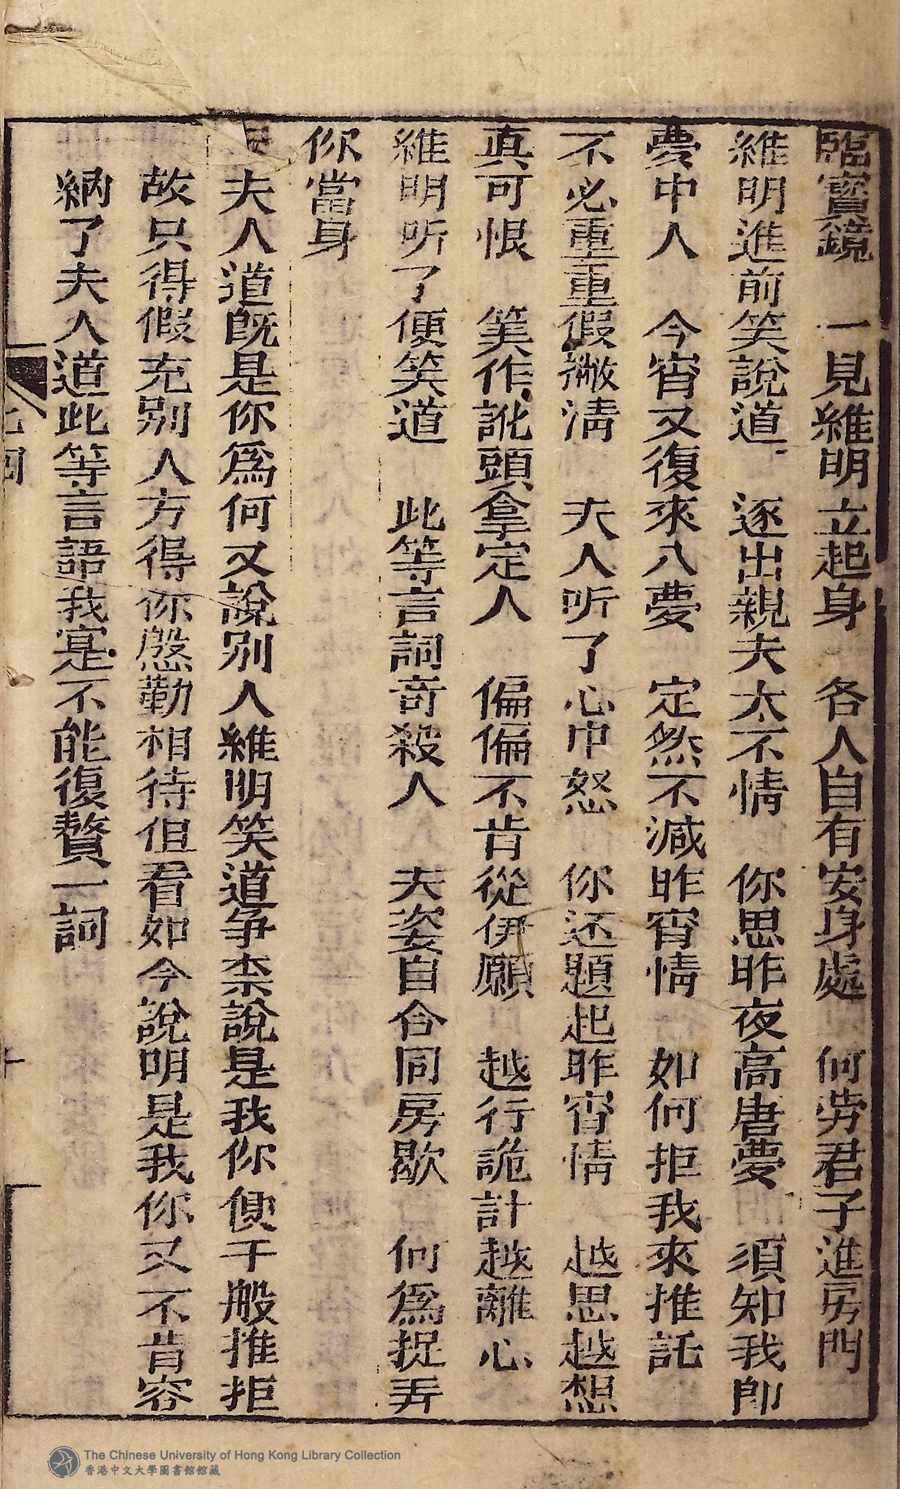 臨寶鏡　一見維明立起身　各人自有安身處　何劳君子進房門
維明進前笑說道　逐出親夫太不情　你思昨夜高唐夢　須知我即
夢中人　今宵又復來入夢　定然不減昨宵情　如何拒我來推託
不必重重假撇清　夫人听了心中怒　你还題起昨宵情　越思越想
真可恨　笑作訛頭拿定人　偏偏不肯從伊願　越行詭計越離心
維明听了便笑道　此等言詞奇殺人　夫妾自合同房歇　何爲捉弄
你當身
夫人道既是你爲何又說別人維明笑道爭柰說是我你便千般推拒
故只得假充别人方得你慇勤相待但看如今說明是我你又不肯容
納了夫人道此等言語我寔不能復贅一詞
回
The Chinese University of Hong Kong Library Collection
香港中文大學圖書館館藏